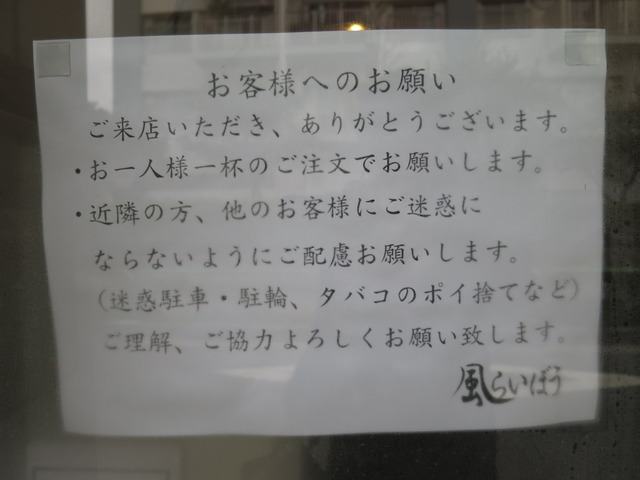 お客様へのお願い
ご来店いただき、ありがとうございます。
・お一人様一杯のご注文でお願いします。
・近隣の方、他のお客様にご迷惑に
ならないようにご配慮お願いします。
（迷惑駐車・駐輪、タバコのポイ捨てなど）
ご理解、ご協力よろしくお願い致します。
風らいぼう